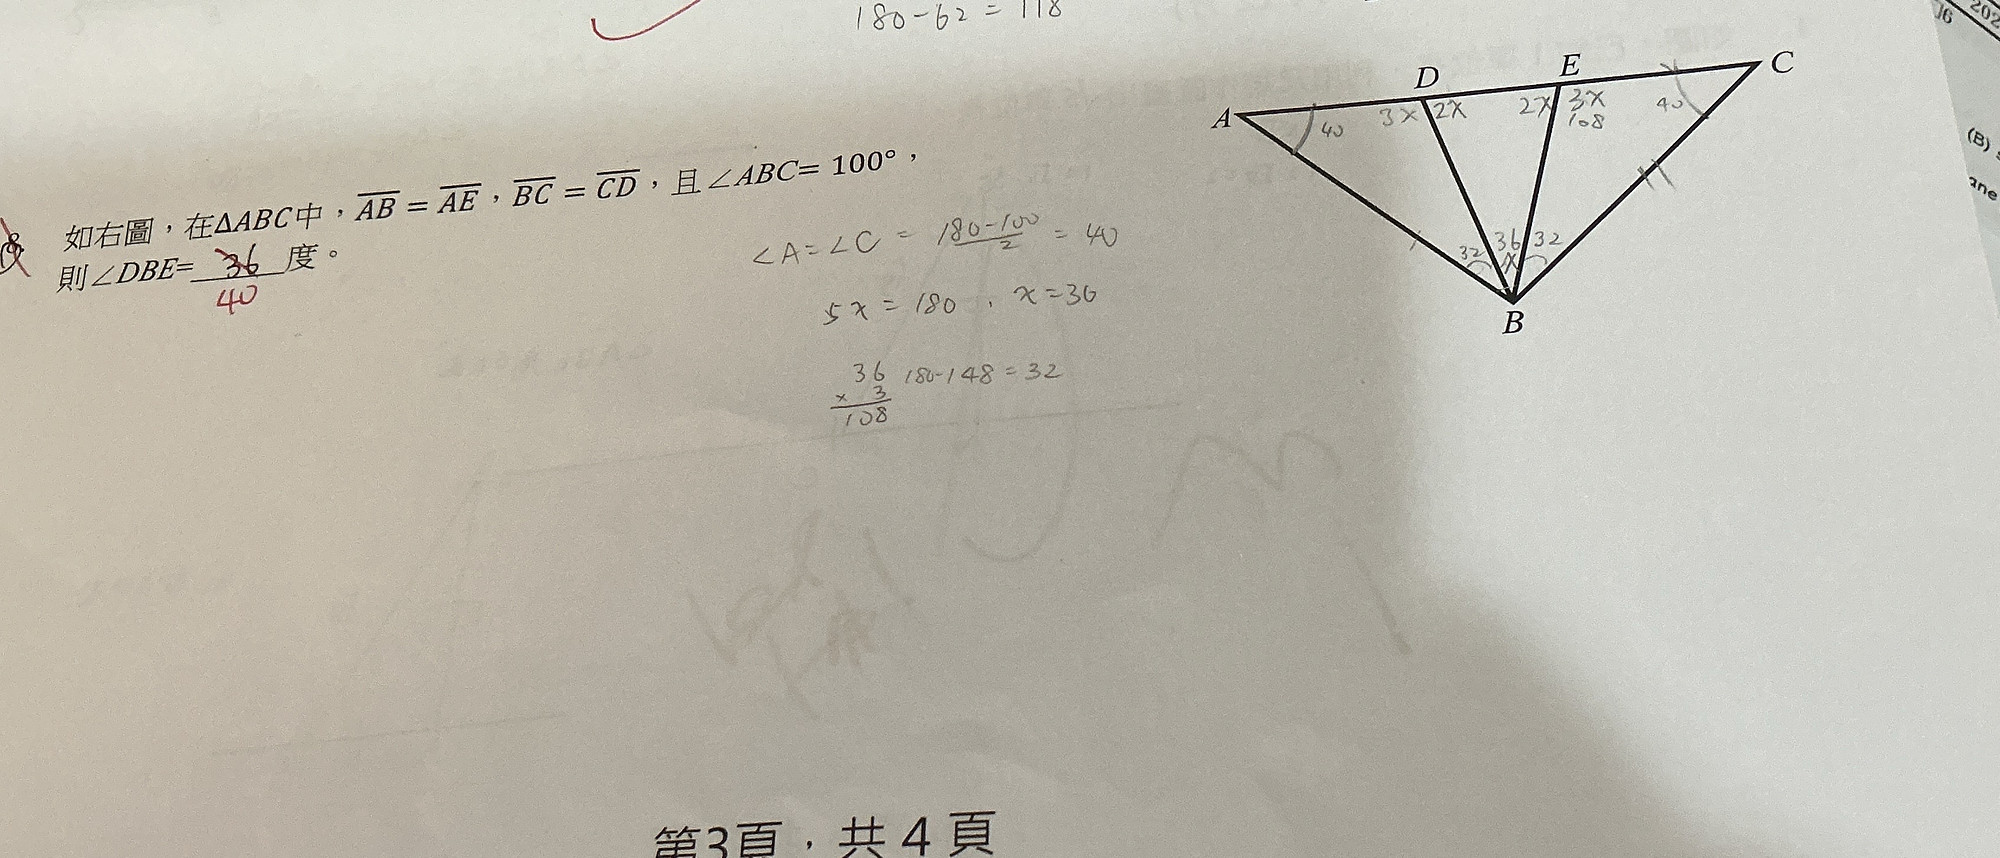 180-62 = 118
如右圖，在ΔABC中，AB = AE，BC = CD，且∠ABC= 100°，
則∠DBE= 36 度。
40
∠A=∠C = 180-100 / 2 = 40
5x = 180 , x=36
36 180-148=32
× 3
108
A
D
E
C
B
40
3x
2x
2x
3x
108
40
32
36
x
32
第3頁，共4頁
202
(B)
ane